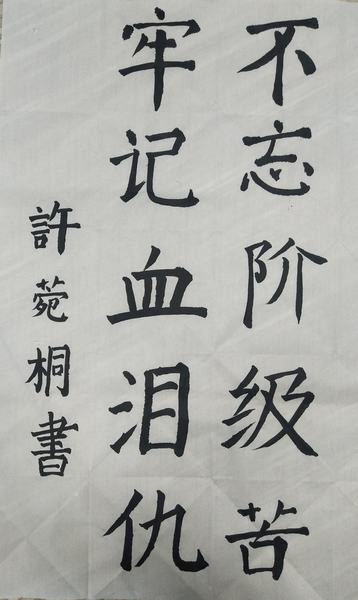 不忘阶级苦
牢记血泪仇
許菀桐書